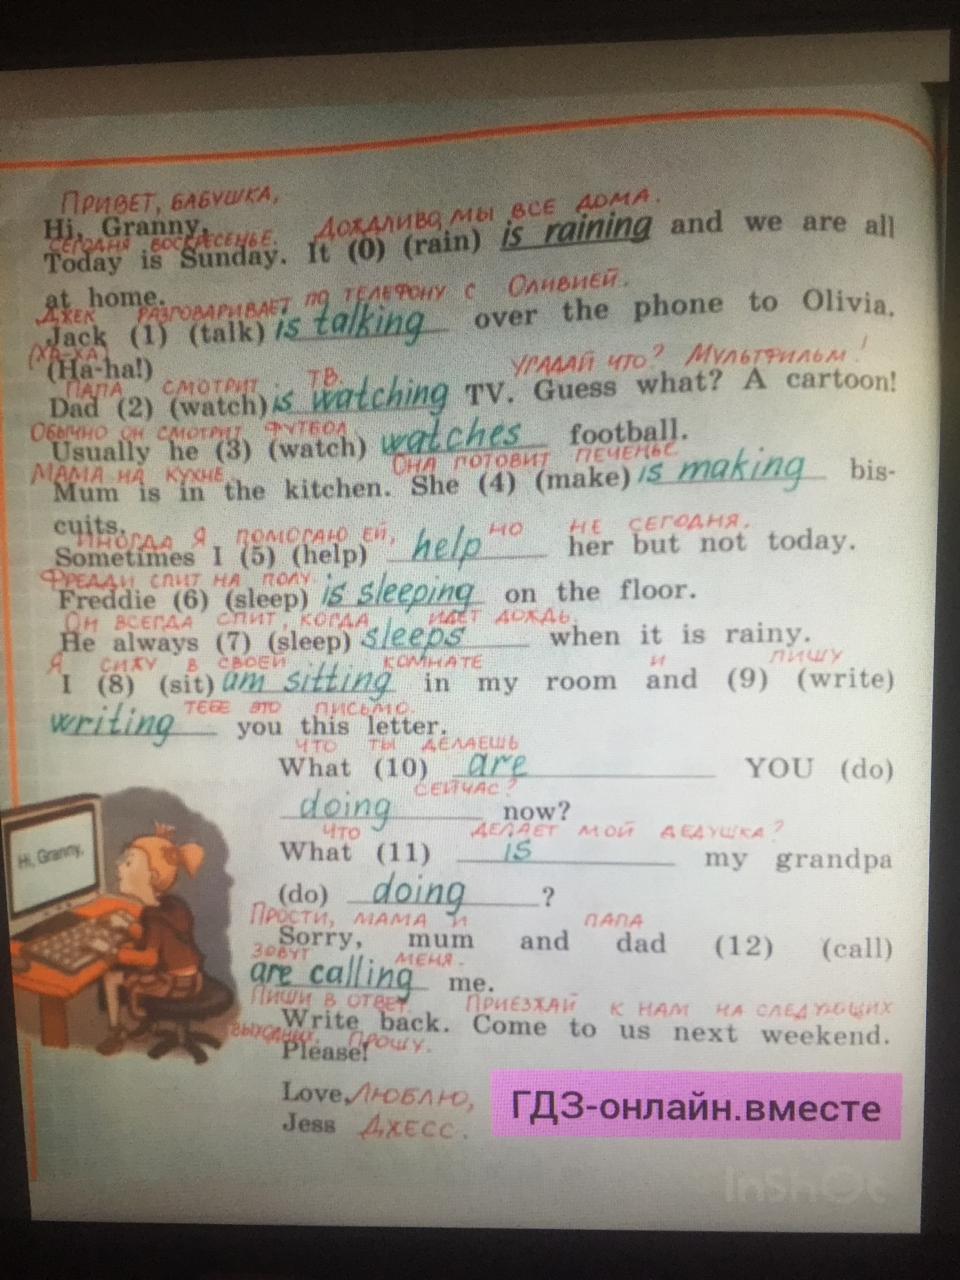 ПРИВЕТ, БАБУШКА,
Hi, Granny,
СЕГОДНЯ ВОСКРЕСЕНЬЕ. ДОЖДЛИВО, МЫ ВСЕ ДОМА.
Today is Sunday. It (0) (rain) is raining and we are all
at home.
ДЖЕК РАЗГОВАРИВАЕТ ПО ТЕЛЕФОНУ С ОЛИВИЕЙ.
Jack (1) (talk) is talking over the phone to Olivia.
(ХА-ХА)
(Ha-ha!)
ПАПА СМОТРИТ ТВ. УГАДАЙ ЧТО? МУЛЬТФИЛЬМ!
Dad (2) (watch) is watching TV. Guess what? A cartoon!
ОБЫЧНО ОН СМОТРИТ ФУТБОЛ.
Usually he (3) (watch) watches football.
МАМА НА КУХНЕ. ОНА ГОТОВИТ ПЕЧЕНЬЕ.
Mum is in the kitchen. She (4) (make) is making bis-
cuits.
ИНОГДА Я ПОМОГАЮ ЕЙ, НО НЕ СЕГОДНЯ.
Sometimes I (5) (help) help her but not today.
ФРЕДДИ СПИТ НА ПОЛУ.
Freddie (6) (sleep) is sleeping on the floor.
ОН ВСЕГДА СПИТ, КОГДА ИДЁТ ДОЖДЬ.
He always (7) (sleep) sleeps when it is rainy.
Я СИЖУ В СВОЕЙ КОМНАТЕ И ПИШУ
I (8) (sit) am sitting in my room and (9) (write)
ТЕБЕ ЭТО ПИСЬМО.
writing you this letter.
ЧТО ТЫ ДЕЛАЕШЬ
What (10) are YOU (do)
СЕЙЧАС?
doing now?
ЧТО ДЕЛАЕТ МОЙ ДЕДУШКА?
What (11) is my grandpa
(do) doing ?
ПРОСТИ, МАМА И ПАПА
Sorry, mum and dad (12) (call)
ЗОВУТ МЕНЯ.
are calling me.
ПИШИ В ОТВЕТ. ПРИЕЗЖАЙ К НАМ НА СЛЕДУЮЩИХ
Write back. Come to us next weekend.
ВЫХОДНЫХ. ПРОШУ.
Please!
Love, ЛЮБЛЮ,
Jess ДЖЕСС.
Hi, Granny,
ГДЗ-онлайн.вместе
InShOt